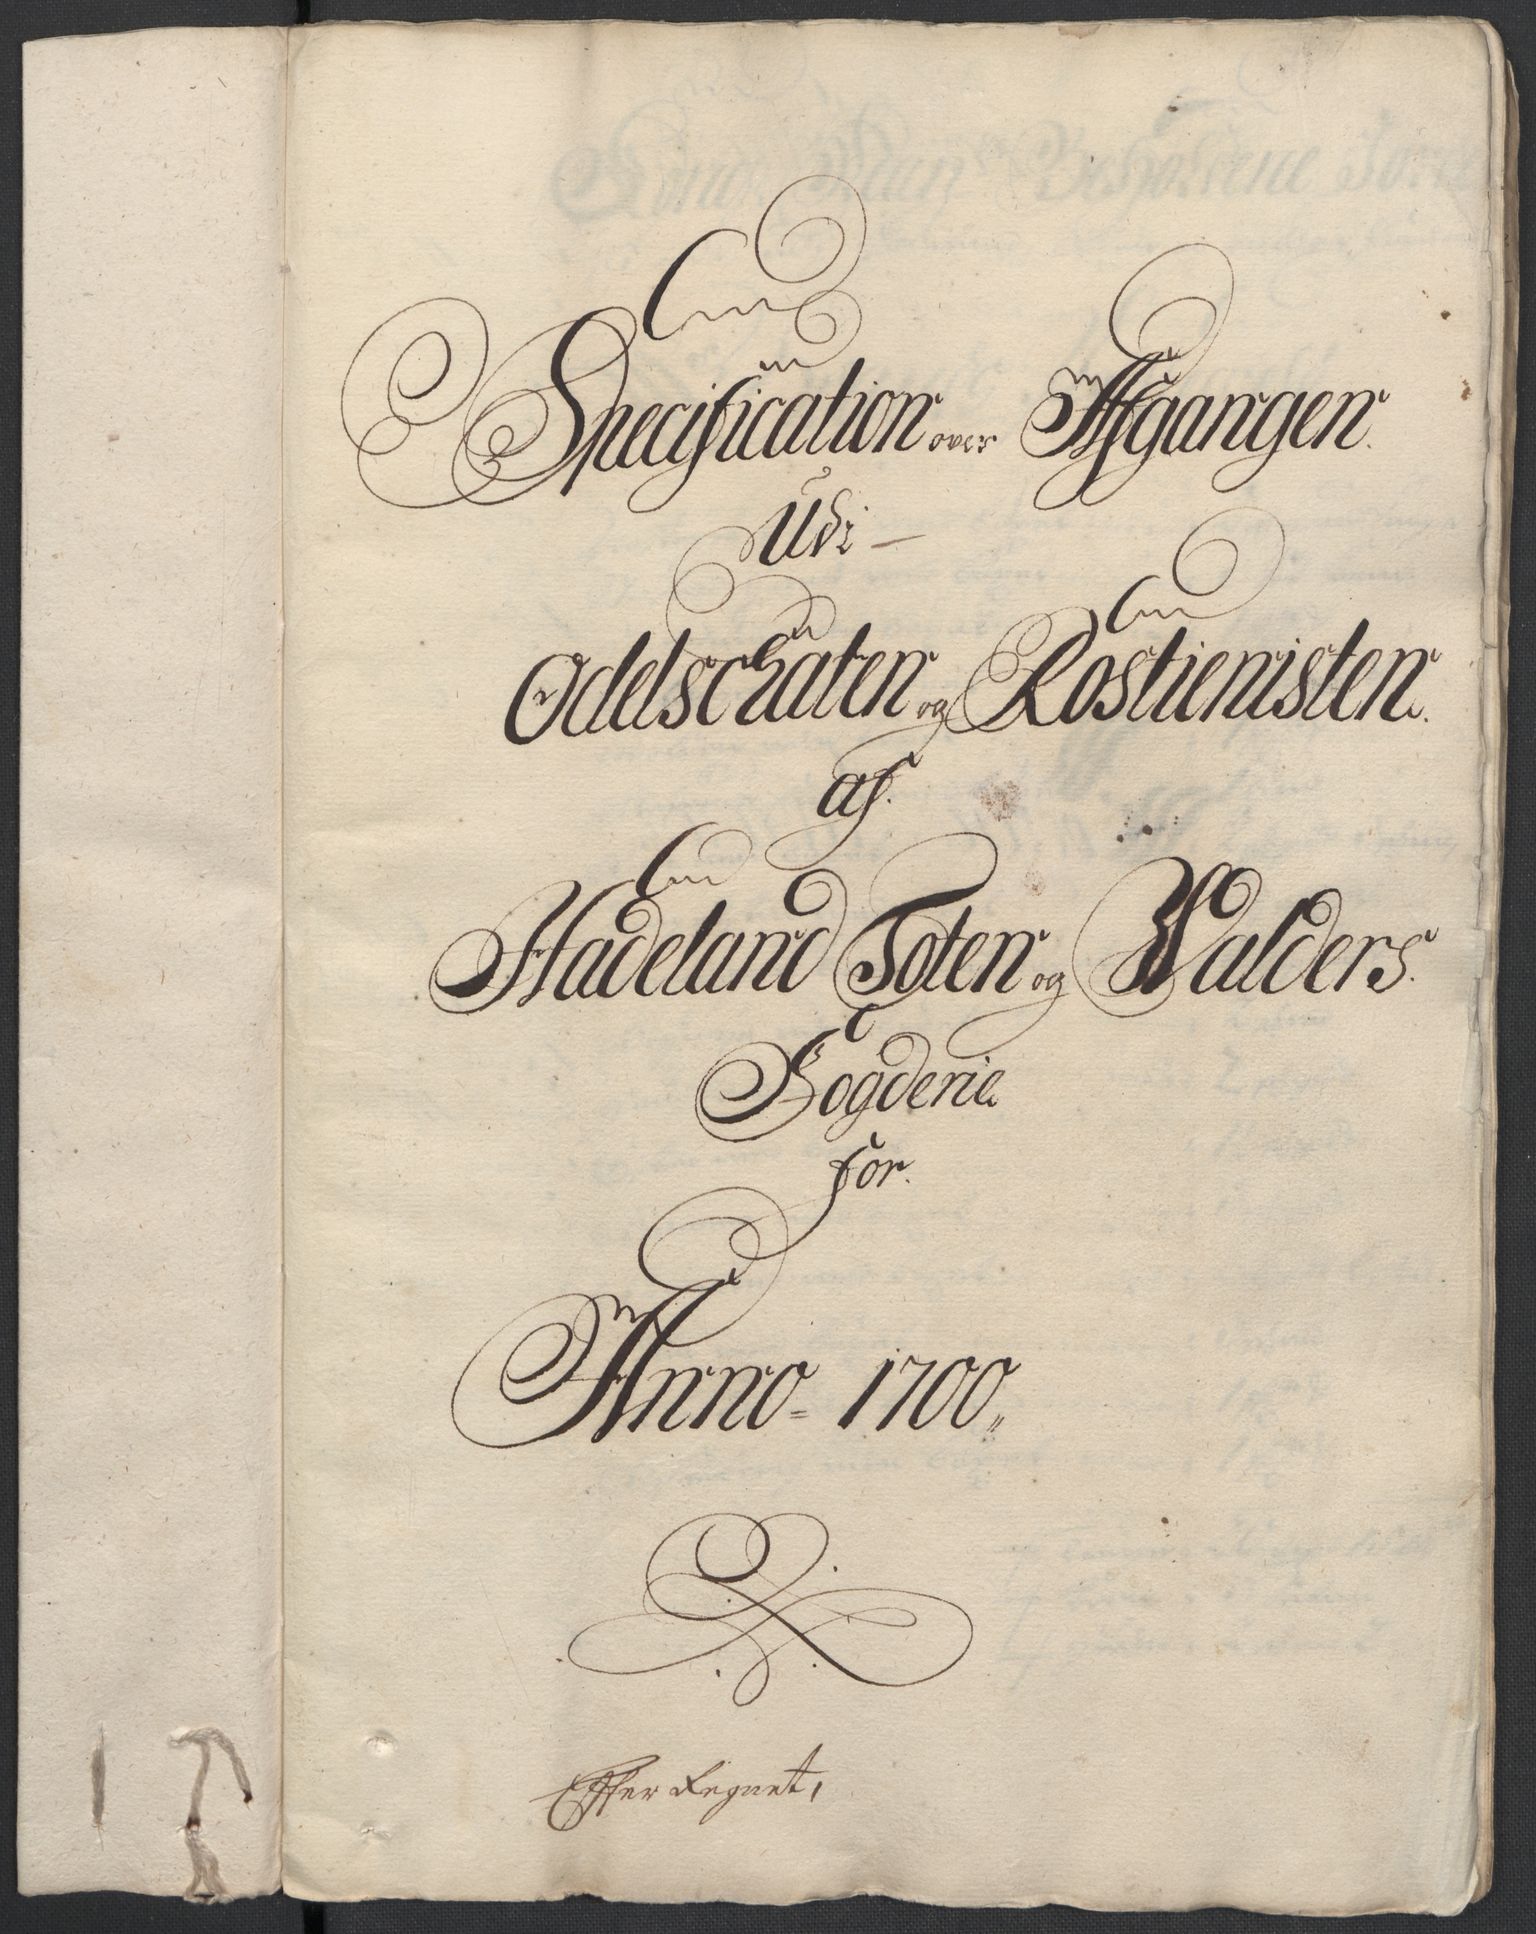 Specification over Afgangen.
Udi
Odelschaten og Rostienisten.
af.
Hadeland Toten og Walders.
Fogderie
for.
Anno 1700
Effter Regnet,